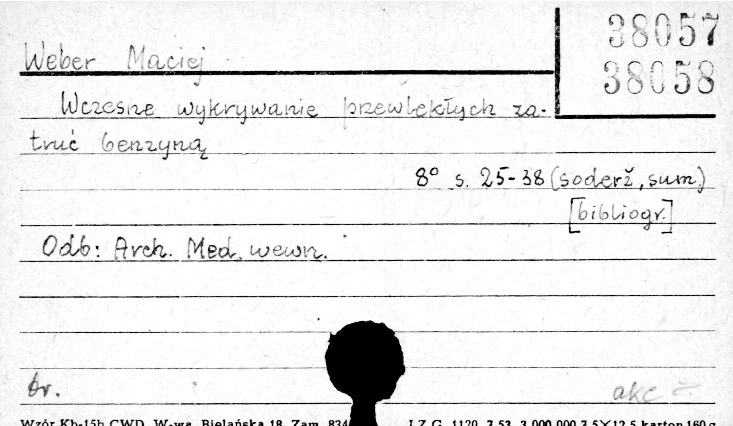 38057
Weber Maciej
38058
Wczesne wykrywanie przewlekłych za-
truć benzyną
8° s. 25-38 (soderž, sum.)
[bibliogr.]
Odb: Arch. Med. wewn.
br.
akc
Wzór Kb-15b CWD, W-wa, Bielańska 18. Zam. 834
LZG. 1120. 7.53. 3.000.000 7.5×12.5 karton 160 g